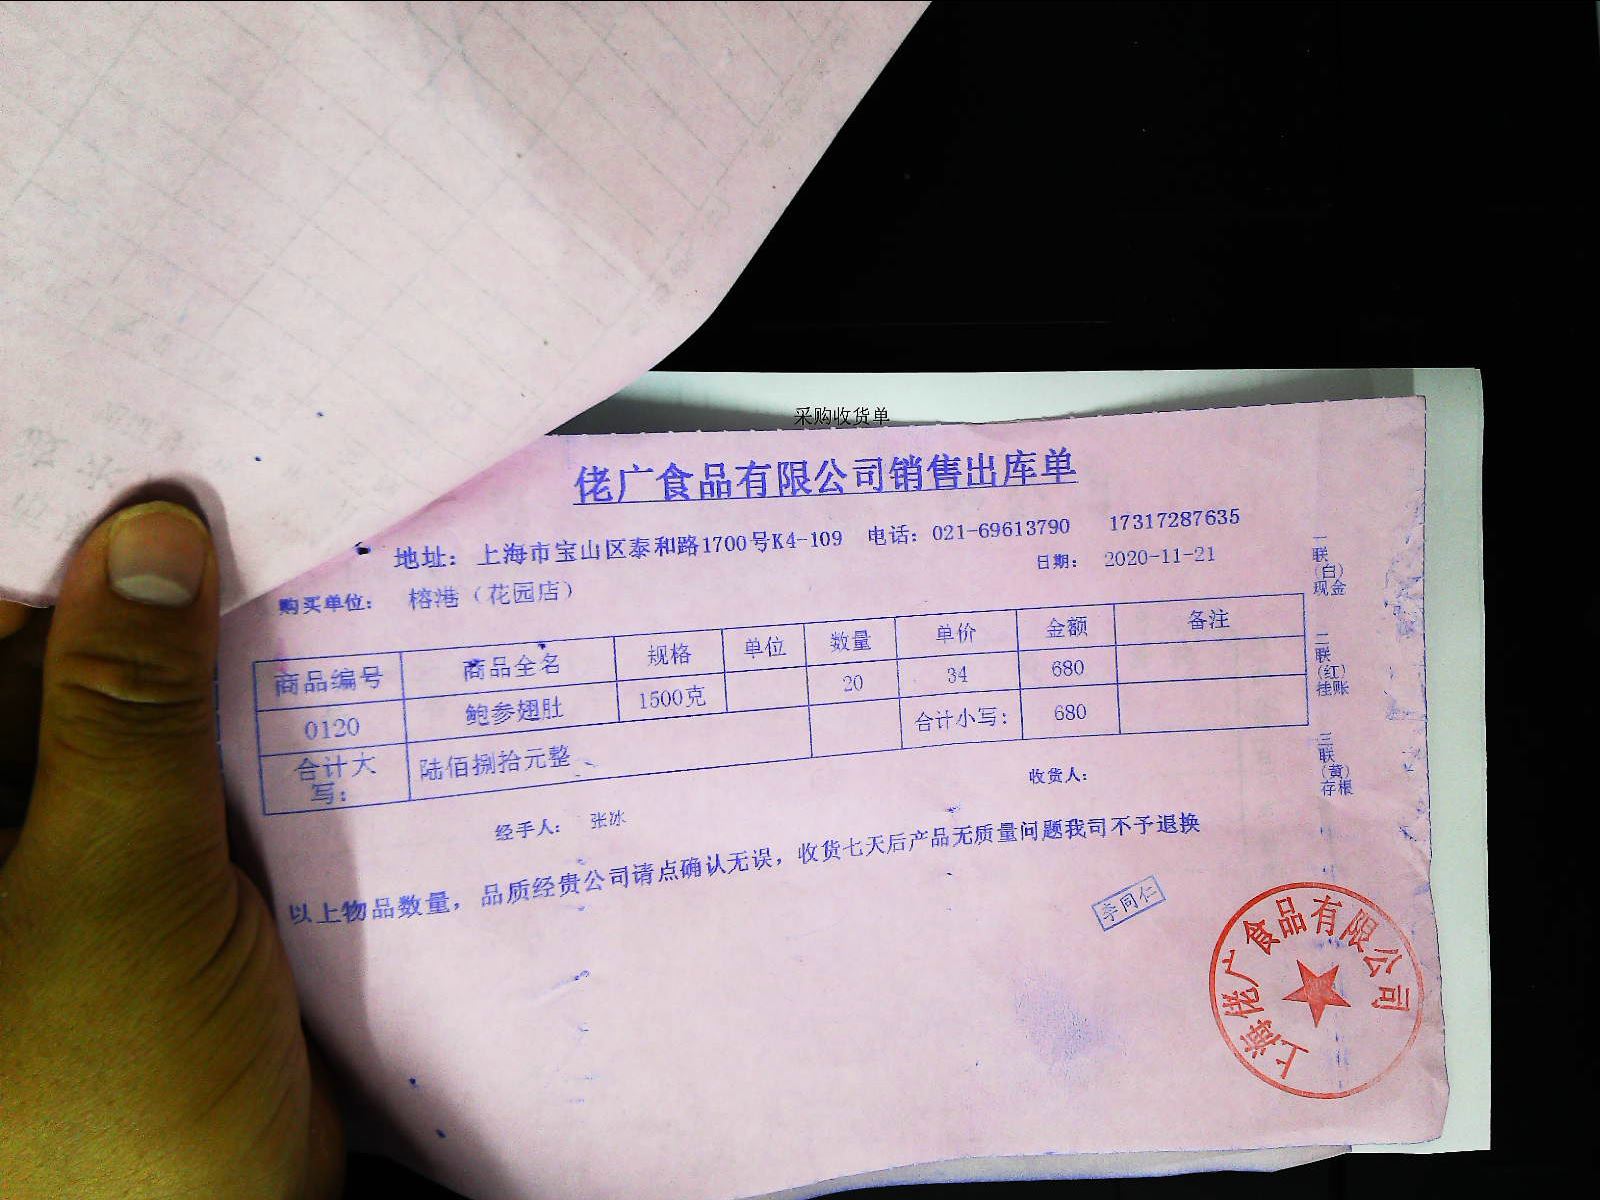 采购收货单
佬广食品有限公司销售出库单
地址： 上海市宝山区泰和路1700号K4-109 电话：021-69613790 17317287635
购买单位： 榕港（花园店） 日期： 2020-11-21
商品编号 商品全名 规格 单位 数量 单价 金额 备注
0120 鲍参翅肚 1500克 20 34 680
合计大写： 陆佰捌拾元整 合计小写： 680
经手人： 张冰 收货人：
以上物品数量，品质经贵公司请点确认无误，收货七天后产品无质量问题我司不予退换
一联（白）现金
二联（红）挂账
三联（黄）存根
李同仁
上海佬广食品有限公司